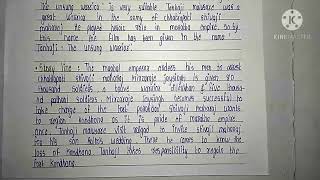 The unsung warrior is very suitable Tanhaji malusare was a
great warrior in the army of chhatrapati shivaji
maharaj. He played heroic role in maratha empire. So by
this name the film has been given in the name
Tanhaji : The unsung warrior"
Story line : The mughal emperor orders his men to arrest
chhatrapati shivaji maharaj Mirzaraje Jaysingh is given 80
thousand soldiers, a brave warrior Dilerkhan & five thous-
and pathan soldiers Mirzaraje Jaysingh becomes successful to
take charge of the fort shivaji maharaj wants
to region kondhana as it is pride of maratha empire
once, Tanhaji malusare visit raigad to Invite shivaji maharaj
for his son Raiba's wedding There he comes to know the
loss of kondhana. Tanhaji takes responsibility to regain the
fort Kondhana.
KINEMASTER